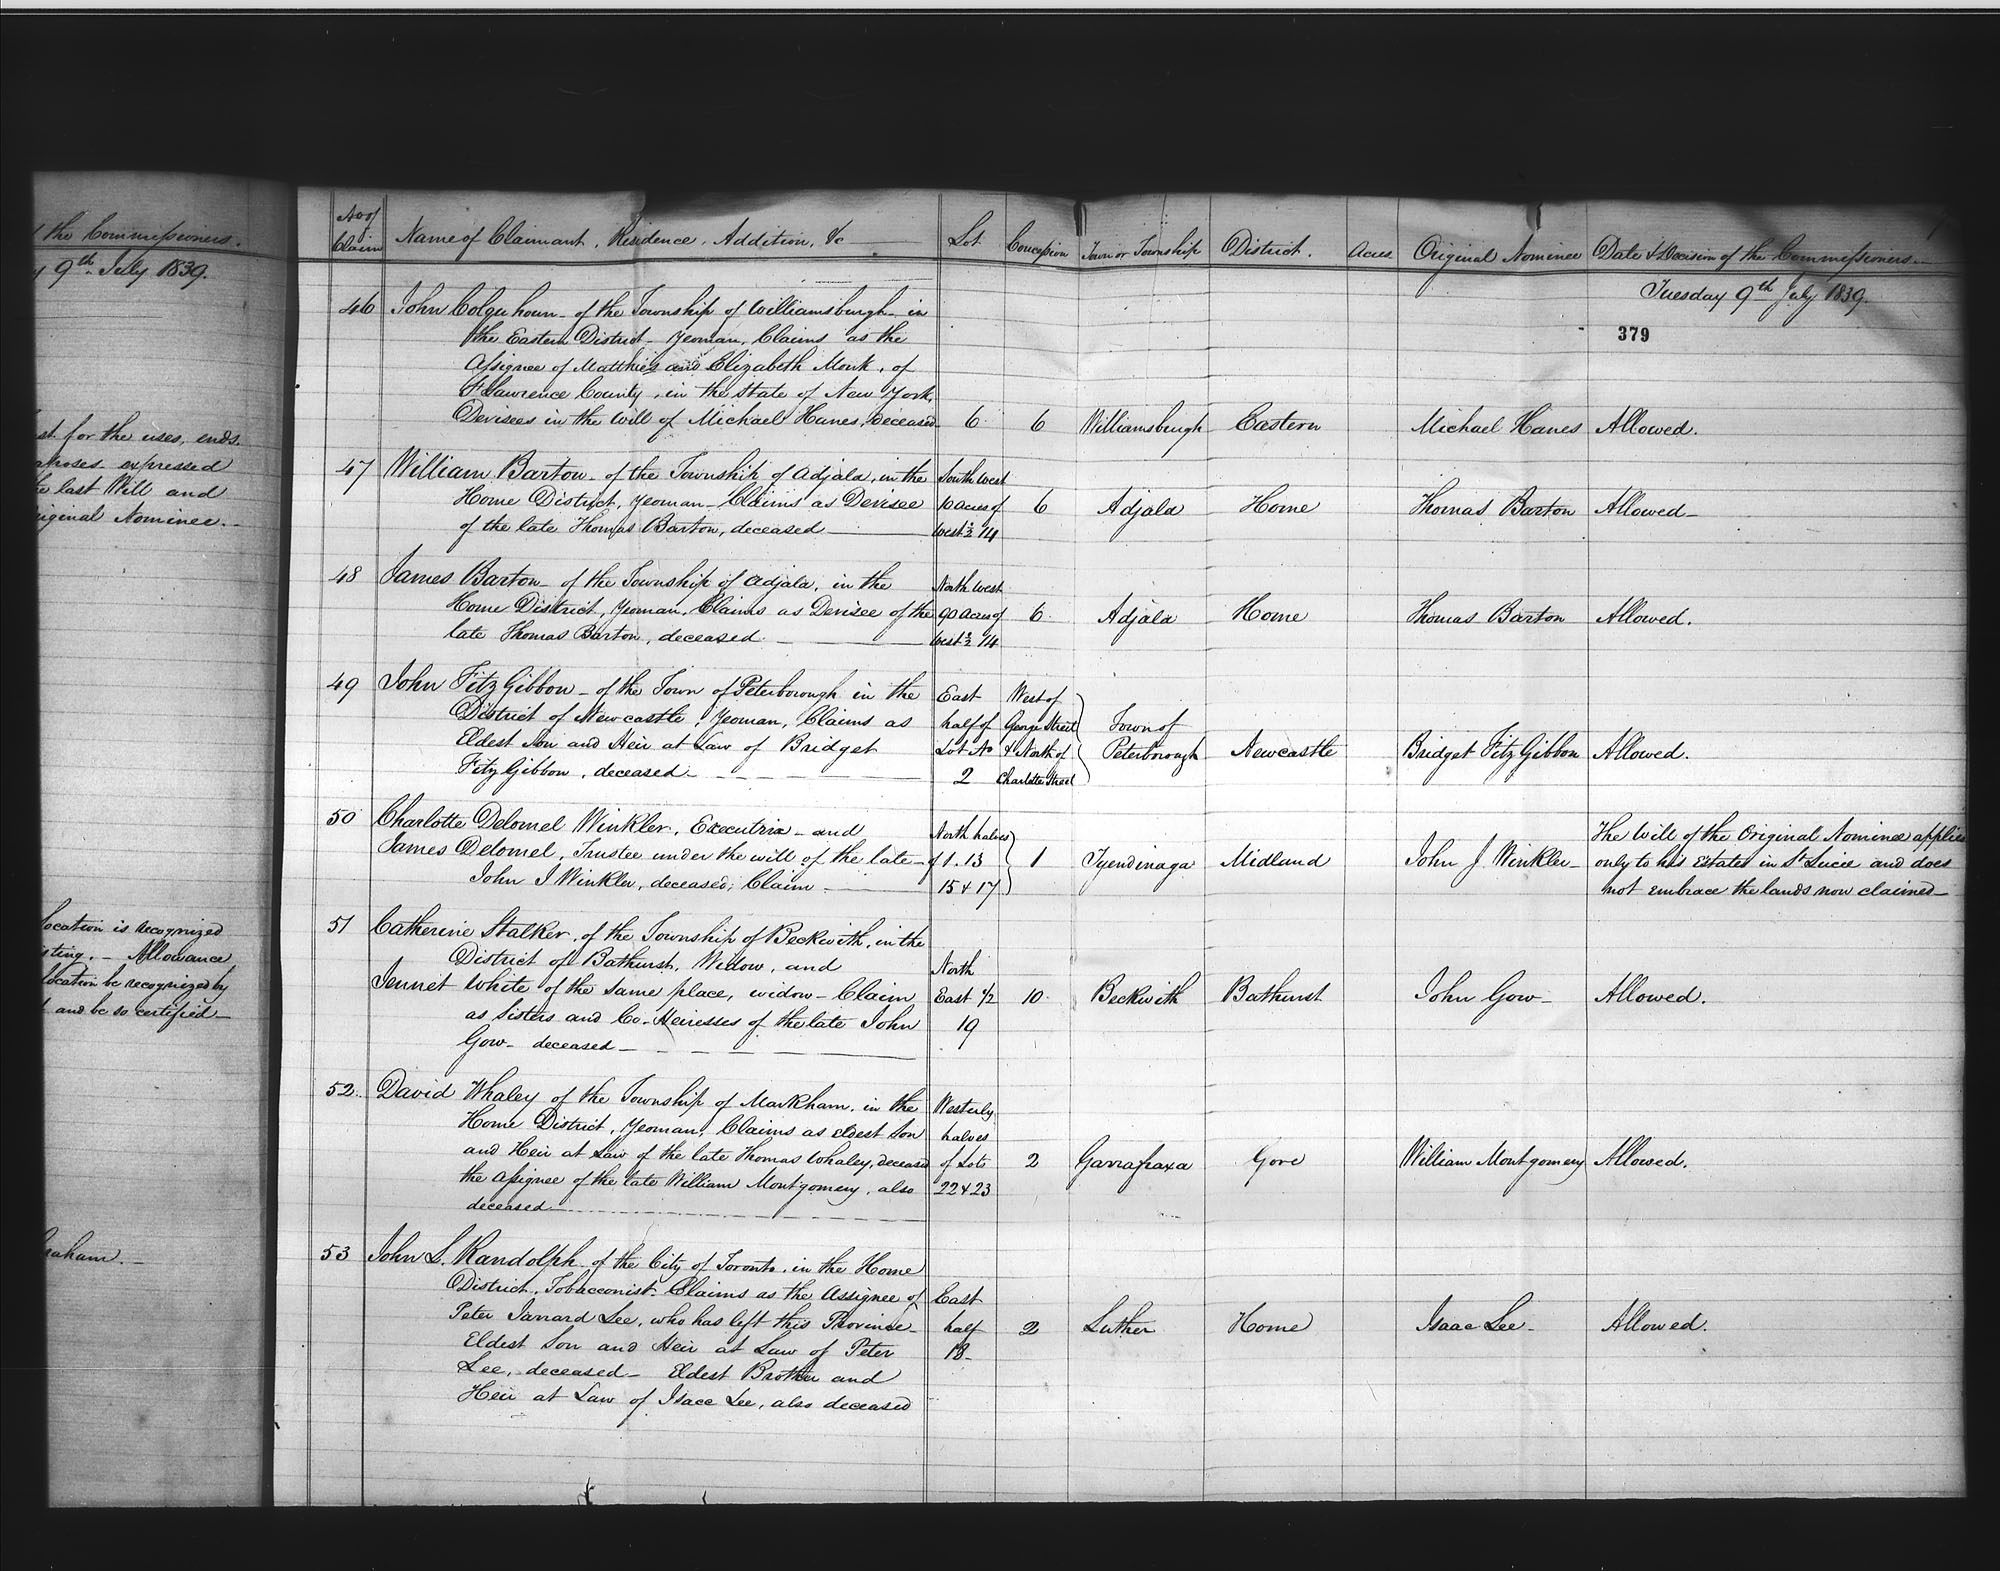 the Commissioners.
9th July 1839.
for the uses, ends
expressed
last Will and
Nominee.
location is recognized
Allowance
location be recognized by
and be so certified
No of Claim
Name of Claimant, Residence, Addition, &c
Lot
Concession
Town or Township
District.
Acres
Original Nominee
Date & Decision of the Commissioners.
Tuesday 9th July 1839.
379
46 John Colquhoun - of the Township of Williamsburgh - in
the Eastern District - Yeoman, Claims as the
Assignee of Matthias and Elizabeth Monk, of
St Lawrence County, in the State of New York,
Devisees in the Will of Michael Hanes, deceased 6 6 Williamsburgh Eastern Michael Hanes Allowed.
47 William Barton - of the Township of Adjala, in the South west
Home District, Yeoman - Claims as Devisee 10 acres of 6 Adjala Home Thomas Barton Allowed -
of the late Thomas Barton, deceased west ½ 14
48 James Barton - of the Township of Adjala, in the North west
Home District, Yeoman, Claims as Devisee of the 90 acres of 6 Adjala Home Thomas Barton Allowed.
late Thomas Barton, deceased west ½ 14
49 John FitzGibbon - of the Town of Peterborough in the East West of
District of Newcastle, Yeoman, Claims as half of George Street Town of
Eldest Son and Heir at Law of Bridget Lot No & North of Peterborough Newcastle Bridget FitzGibbon Allowed.
FitzGibbon, deceased 2 Charlotte Street
50 Charlotte Delomel Winkler, Executrix - and North halves The Will of the Original Nominee applies
James Delomel, Trustee under the will of the late - of 1. 13 1 Tyendinaga Midland John J Winkler - only to his Estates in St Lucie and does
John J Winkler, deceased; Claim 15 & 17 not embrace the lands now claimed -
51 Catherine Stalker, of the Township of Beckwith, in the
District of Bathurst, Widow, and North
Jennet White of the same place, widow - Claim East 1/2 10 Beckwith Bathurst John Gow - Allowed.
as Sisters and Co-Heiresses of the late John 19
Gow - deceased
52 David Whaley of the Township of Markham, in the Westerly
Home District, Yeoman, Claims as eldest Son halves
and Heir at Law of the late Thomas Whaley, deceased of Lots 2 Garrafraxa Gore William Montgomery Allowed.
the Assignee of the late William Montgomery, also 22 & 23
deceased
53 John S. Randolph of the City of Toronto, in the Home
District, Tobacconist - Claims as the Assignee of East
Peter Jarrard Lee, who has left this Province - half 2 Luther Home Isaac Lee - Allowed.
Eldest Son and Heir at Law of Peter 18 -
Lee, deceased - Eldest Brother and
Heir at Law of Isaac Lee, also deceased